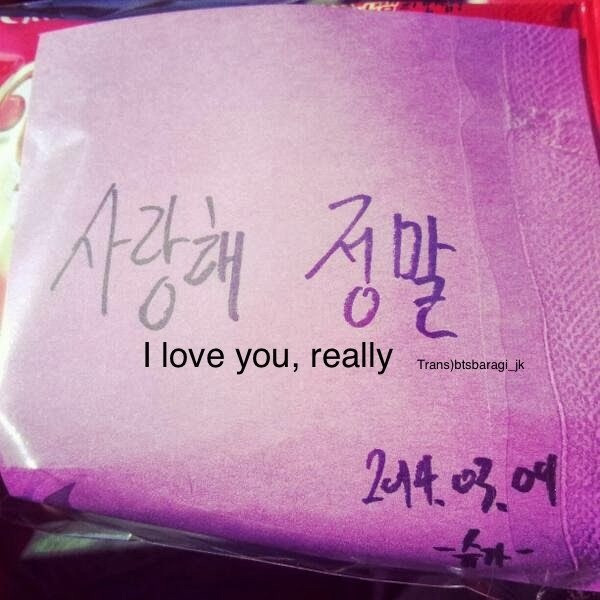 사랑해 정말
I love you, really
Trans)btsbaragi_jk
2014.03.09
-슈가-